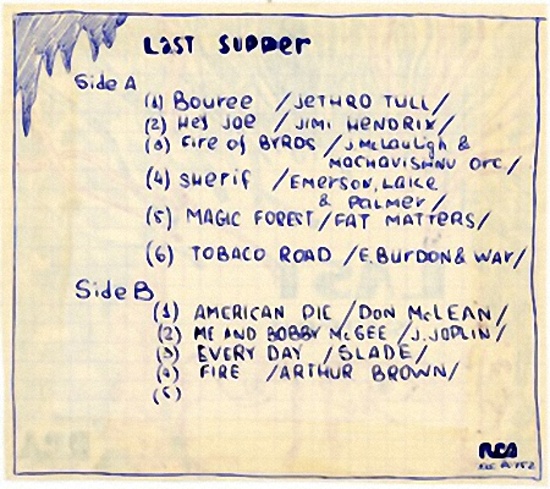 LAST SUPPER
Side A
(1) Bouree /JETHRO TULL/
(2) Hey Joe /JIMI HENDRIX/
(3) Fire of BYRDS /J.McLauligh &
MACHAVISHNU Orc/
(4) SHeriF /Emerson, Lake
& Palmer/
(5) MAGIC FOREST/FAT MATTERS/
(6) TOBACO ROAD /E.BURDON & WAR/
Side B
(1) AMERICAN PIE /DON McLEAN/
(2) ME AND BOBBY McGEE /J.JOPLIN/
(3) EVERY DAY /SLADE/
(4) FIRE /ARTHUR BROWN/
(5)
RCA